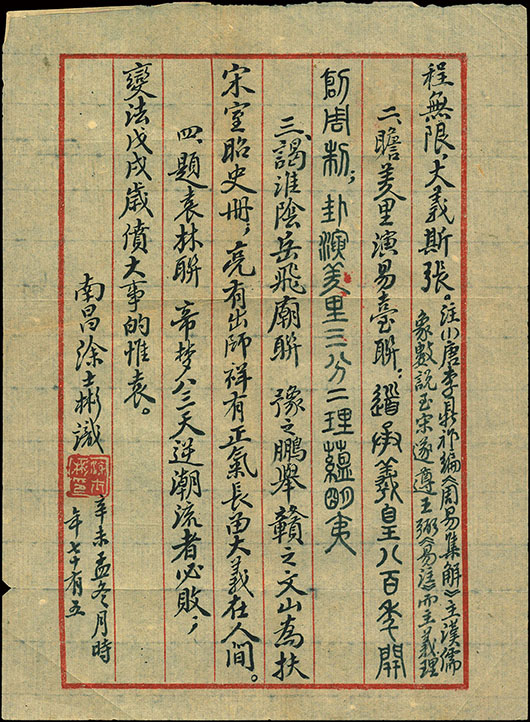 程無限,大義斯張。注⑴唐李鼎祚編《周易集解》主漢儒
象數説至宋遂尊王弼《易注》而主義理
二、瞻羑里演易臺聯:道承羲皇八百季開
創周制;卦演羑里三分二理蘊明夷
三、謁淮陰岳飛廟聯 豫之鵬舉贛之文山為扶
宋室昭史冊,亮有出師祥有正氣長留大義在人間。
四、題袁林聯 帝梦八三天逆潮流者必敗;
變法戊戌歲僨大事的惟袁。
南昌涂士彬識
辛未孟冬月時
年七十有五